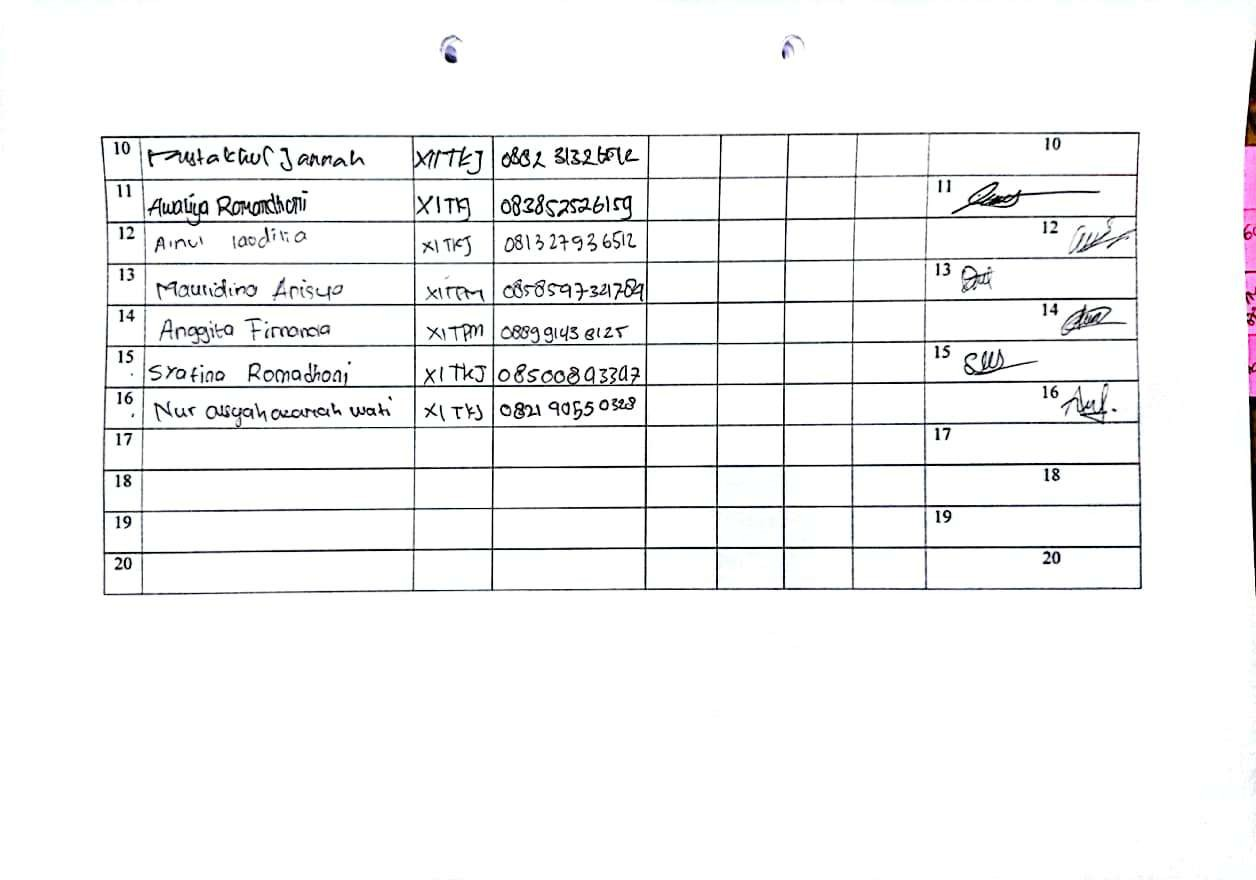 10 Miftakhul Jannah XII TKJ 0882 31326512 10
11 Awaliya Romandhoni XI TKJ 083852526159 11
12 Ainul XI TKJ 081327936512 12
13 Mauridina Arisya XI TPM 0858597321789 13
14 Anggita Firnanda XI TPM 088991438125 14
15 Syafina Romadhoni XI TKJ 08500893397 15
16 Nur aisyah azariah wati XI TKJ 082190550328 16
17 17
18 18
19 19
20 20